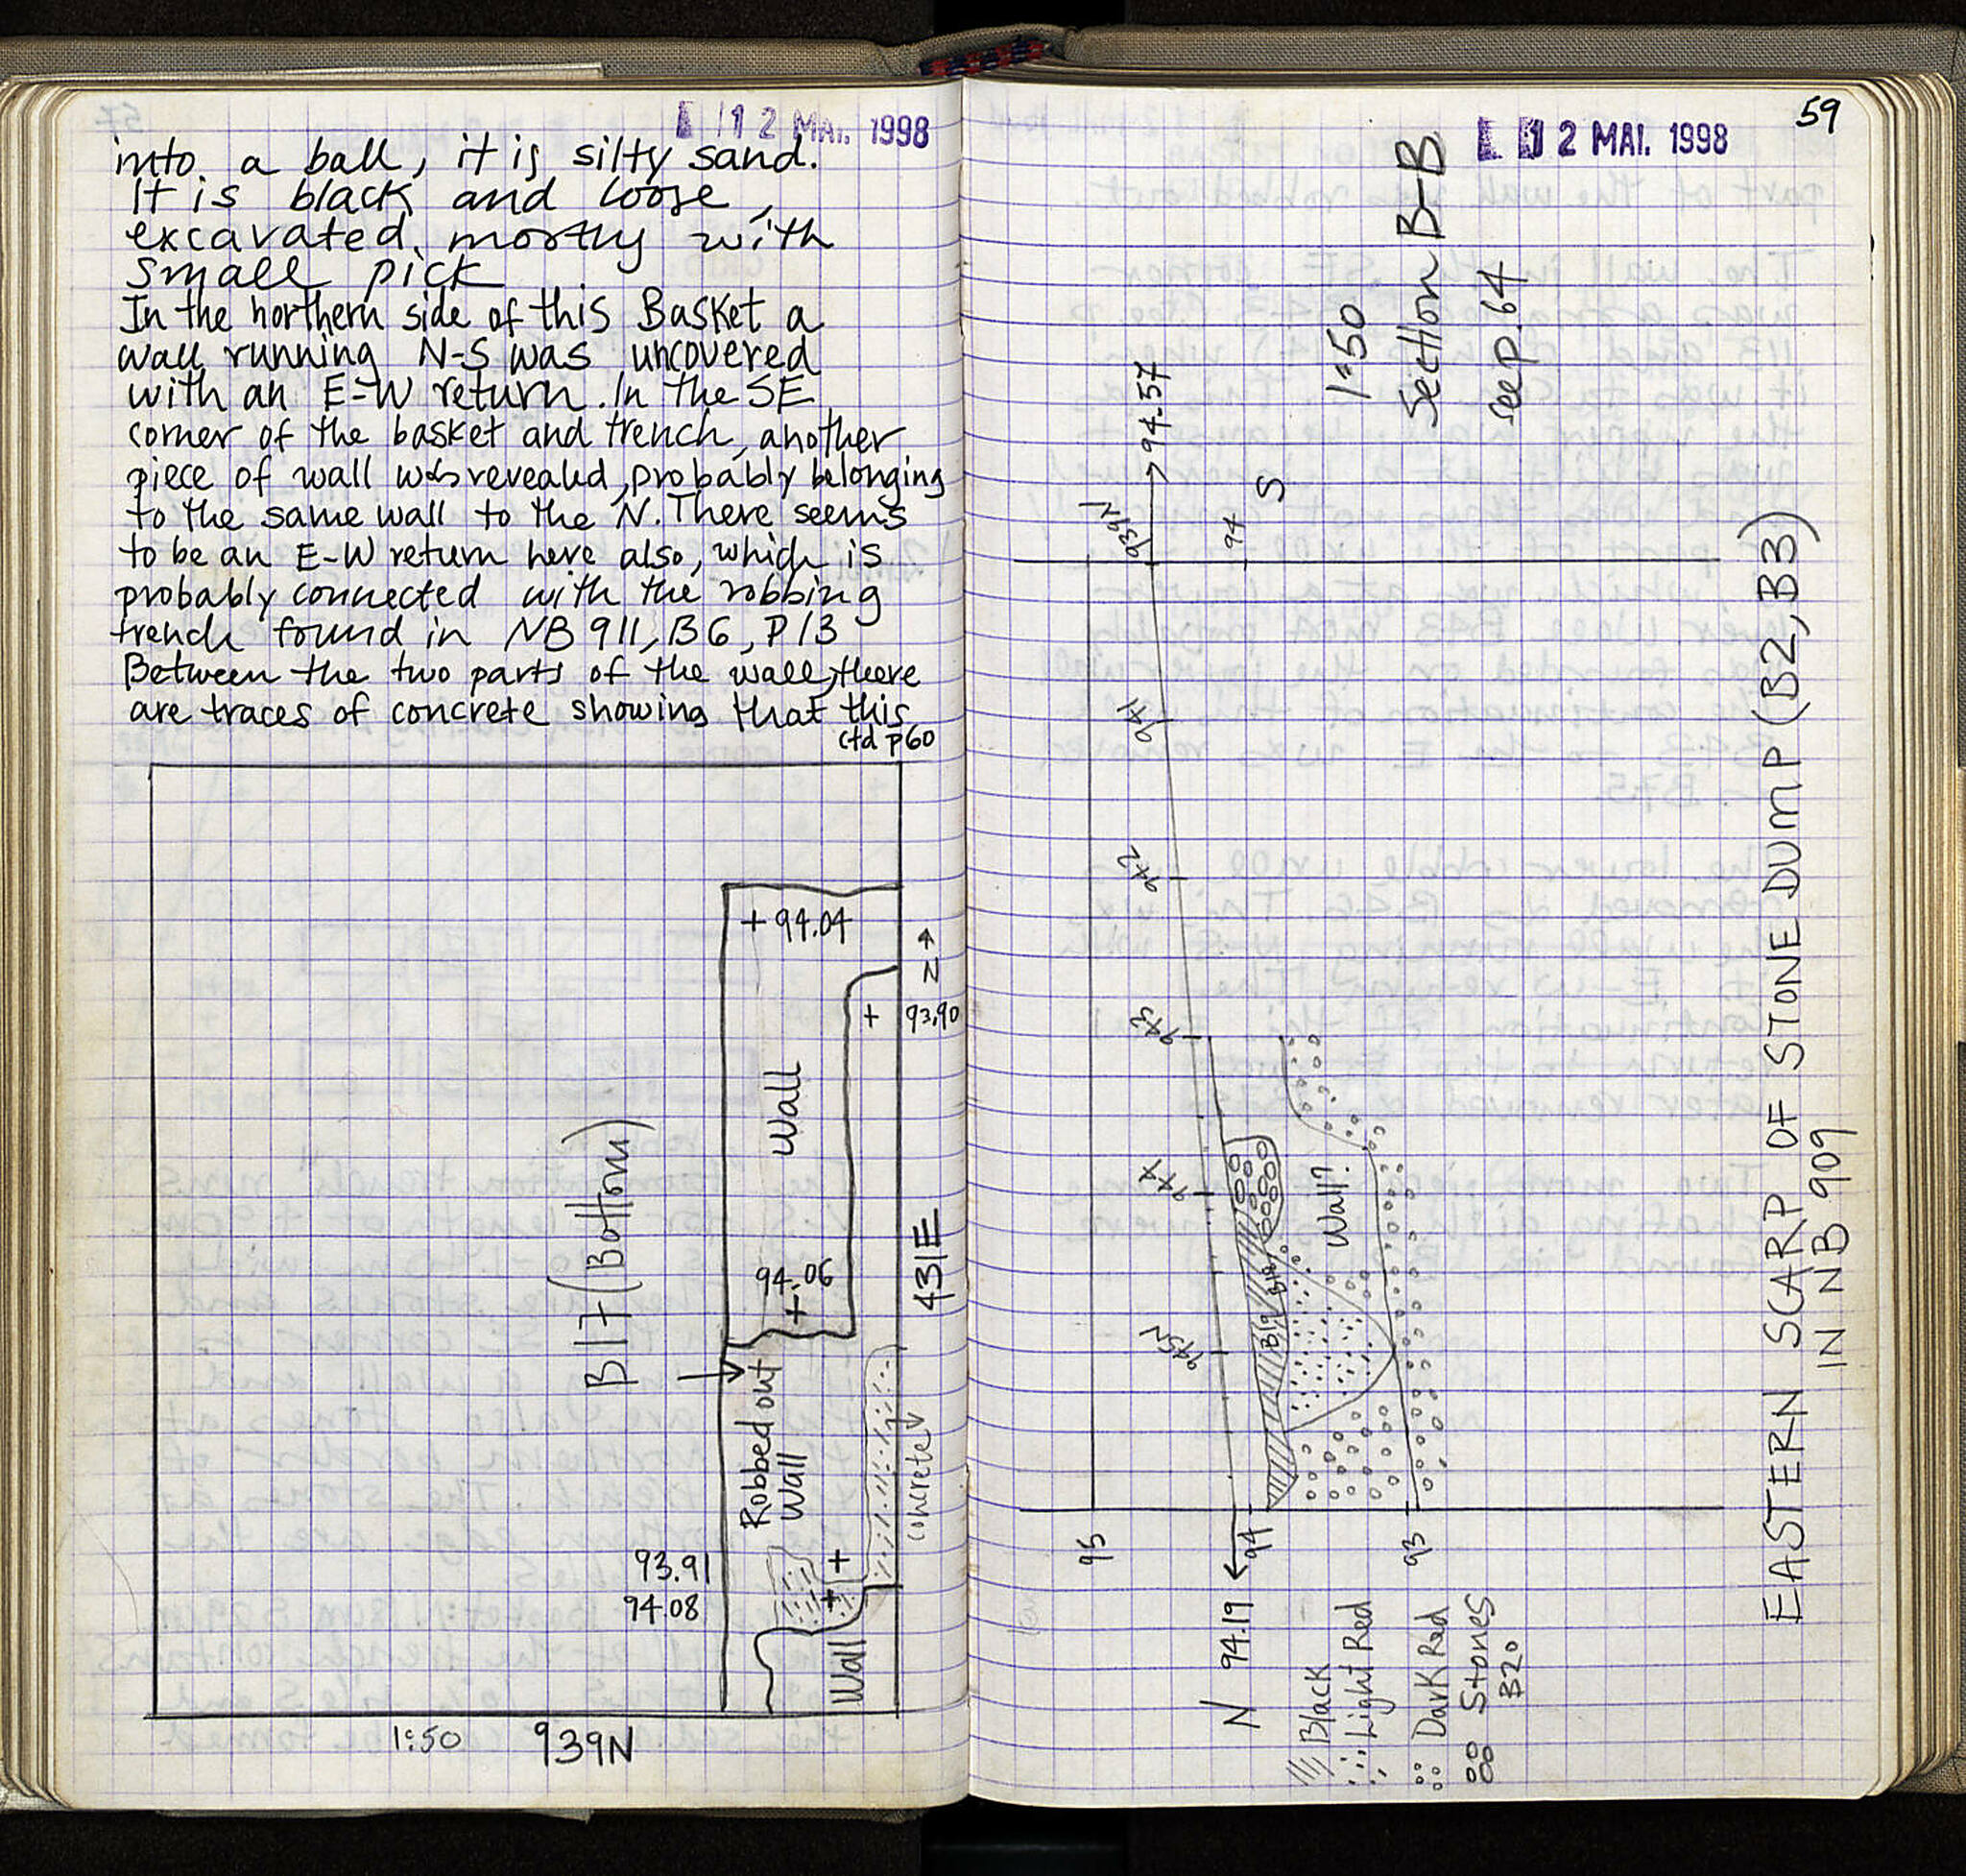 12 MAI. 1998
into a ball, it is silty sand.
It is black and loose,
excavated mostly with
small pick
In the northern side of this Basket a
wall running N-S was uncovered
with an E-W return. In the SE
corner of the basket and trench, another
piece of wall was revealed, probably belonging
to the same wall to the N. There seems
to be an E-W return here also, which is
probably connected with the robbing
trench found in NB 911, B6, P13
Between the two parts of the wall, there
are traces of concrete showing that this
ctd p60
+ 94.04
N →
+ 93.90
Wall
B17 (Bottom)
94.06
+
431E
Robbed out
Wall
concrete
93.91 +
94.08 +
Wall
1:50 939N
59
12 MAI. 1998
Section B-B
1:50
See p. 64
94.57
939N
94
S
941
942
943
944
945N
Wall?
B19
B19
95
94
93
N 94.19
Black
Light Red
Dark Red
Stones
B20
EASTERN SCARP OF STONE DUMP (B2, B3)
IN NB 909